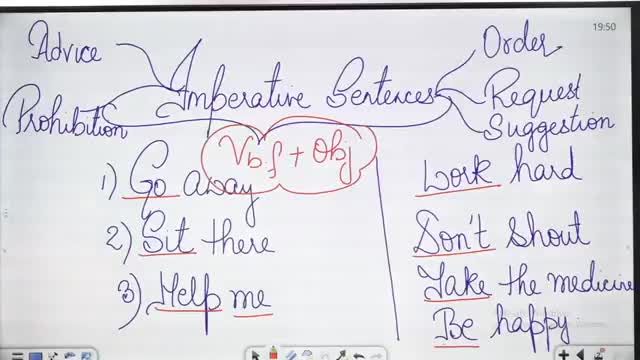 19:50
Advice
Order
Imperative Sentences
Request
Prohibition
Suggestion
Vb.f + Obj
1) Go away
2) Sit there
3) Help me
Work hard
Don't shout
Take the medicine
Be happy